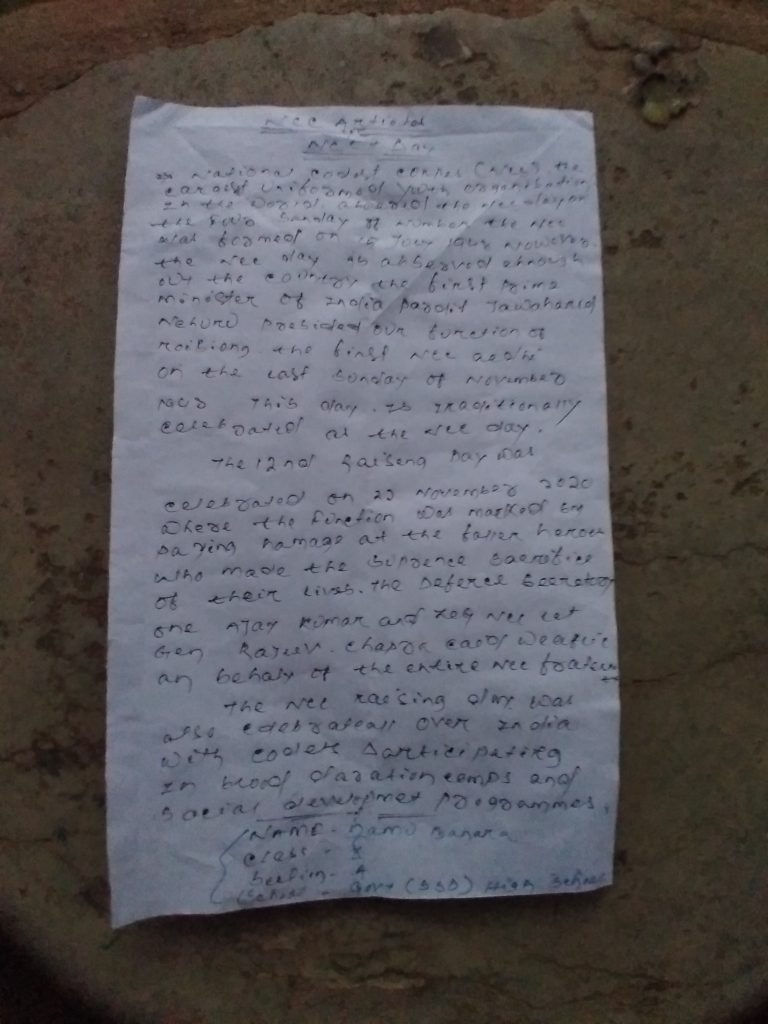 NCC Article
NCC Day
National cadet corps (NCC) the
largest uniformed youth organisation
In the world observed the NCC day on
the Sunday of number the NCC
was formed on 15 However
the NCC day is observed through
out the country the first Prime
Minister of India Pandit Jawaharlal
Nehru Presided our function of
the first NCC
on the last Sunday of November
This day. Is Traditionally
celebrated at the NCC day.
The 72nd Raising Day was
celebrated on 22 November 2020
where the function was marked by
Paying Hamage at the fallen heroes
who made the Suprence Sacrifice
of their lives. The Defence Secretary
one Ajay Kumar and NCC Let
Gen Rajeev. Chopra
an behalf of the entire NCC
The NCC raising day was
also celebrateall over India
with codets Participating
In blood donation camps and
Social development Programmes.
NAME - Ramu Banara
Class - X
Section - A
School - Govt (SSD) High School